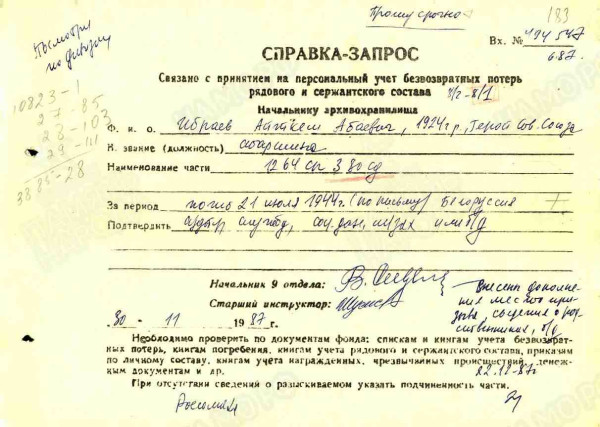 Прошу срочно
183
Вх. № 494547
687.
Посмотри
по
10823-1
27-85
28-103
29-111
3885-28
СПРАВКА-ЗАПРОС
Связано с принятием на персональный учет безвозвратных потерь
рядового и сержантского состава
Начальнику архивохранилища
Ф. и о. Ибраев Абаевич, 1924 г.р., Герой Сов. Союза
В. звание (должность) старшина
Наименование части 1264 сп 380 сд
За период погиб 21 июля 1944 г. (по письму) Белоруссия
Подтвердить
Начальник 9 отдела:
Старший инструктор:
Внесены дополне
ния место при
зыва, сведения о род
ственниках,
22.12.87г
30 - 11 1987 г.
Необходимо проверить по документам фонда: спискам и книгам учета безвозврат-
ных потерь, книгам погребения, книгам учета рядового и сержантского состава, приказам
по личному составу, книгам учета награжденных, чрезвычайных происшествий, денеж-
ным документам и др.
При отсутствии сведений о разыскиваемом указать подчиненность части.